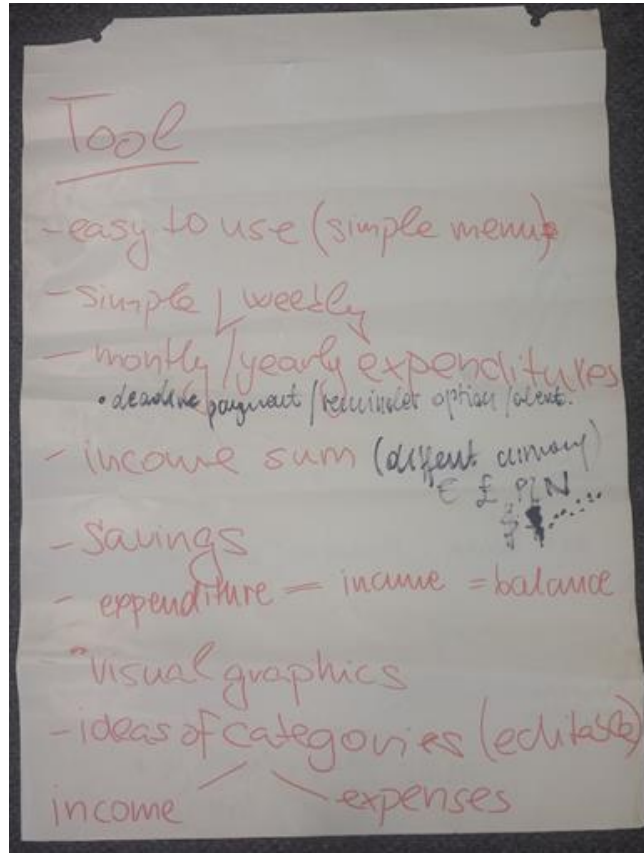 Tool
- easy to use (simple menu)
- simple / weekly
- montly / yearly expenditures
• deadline payment / reminder option / alert.
- income sum (diffent currency)
€ £ PLN
$
- Savings
- expenditure = income = balance
- visual graphics
- ideas of categories (editable)
income expenses